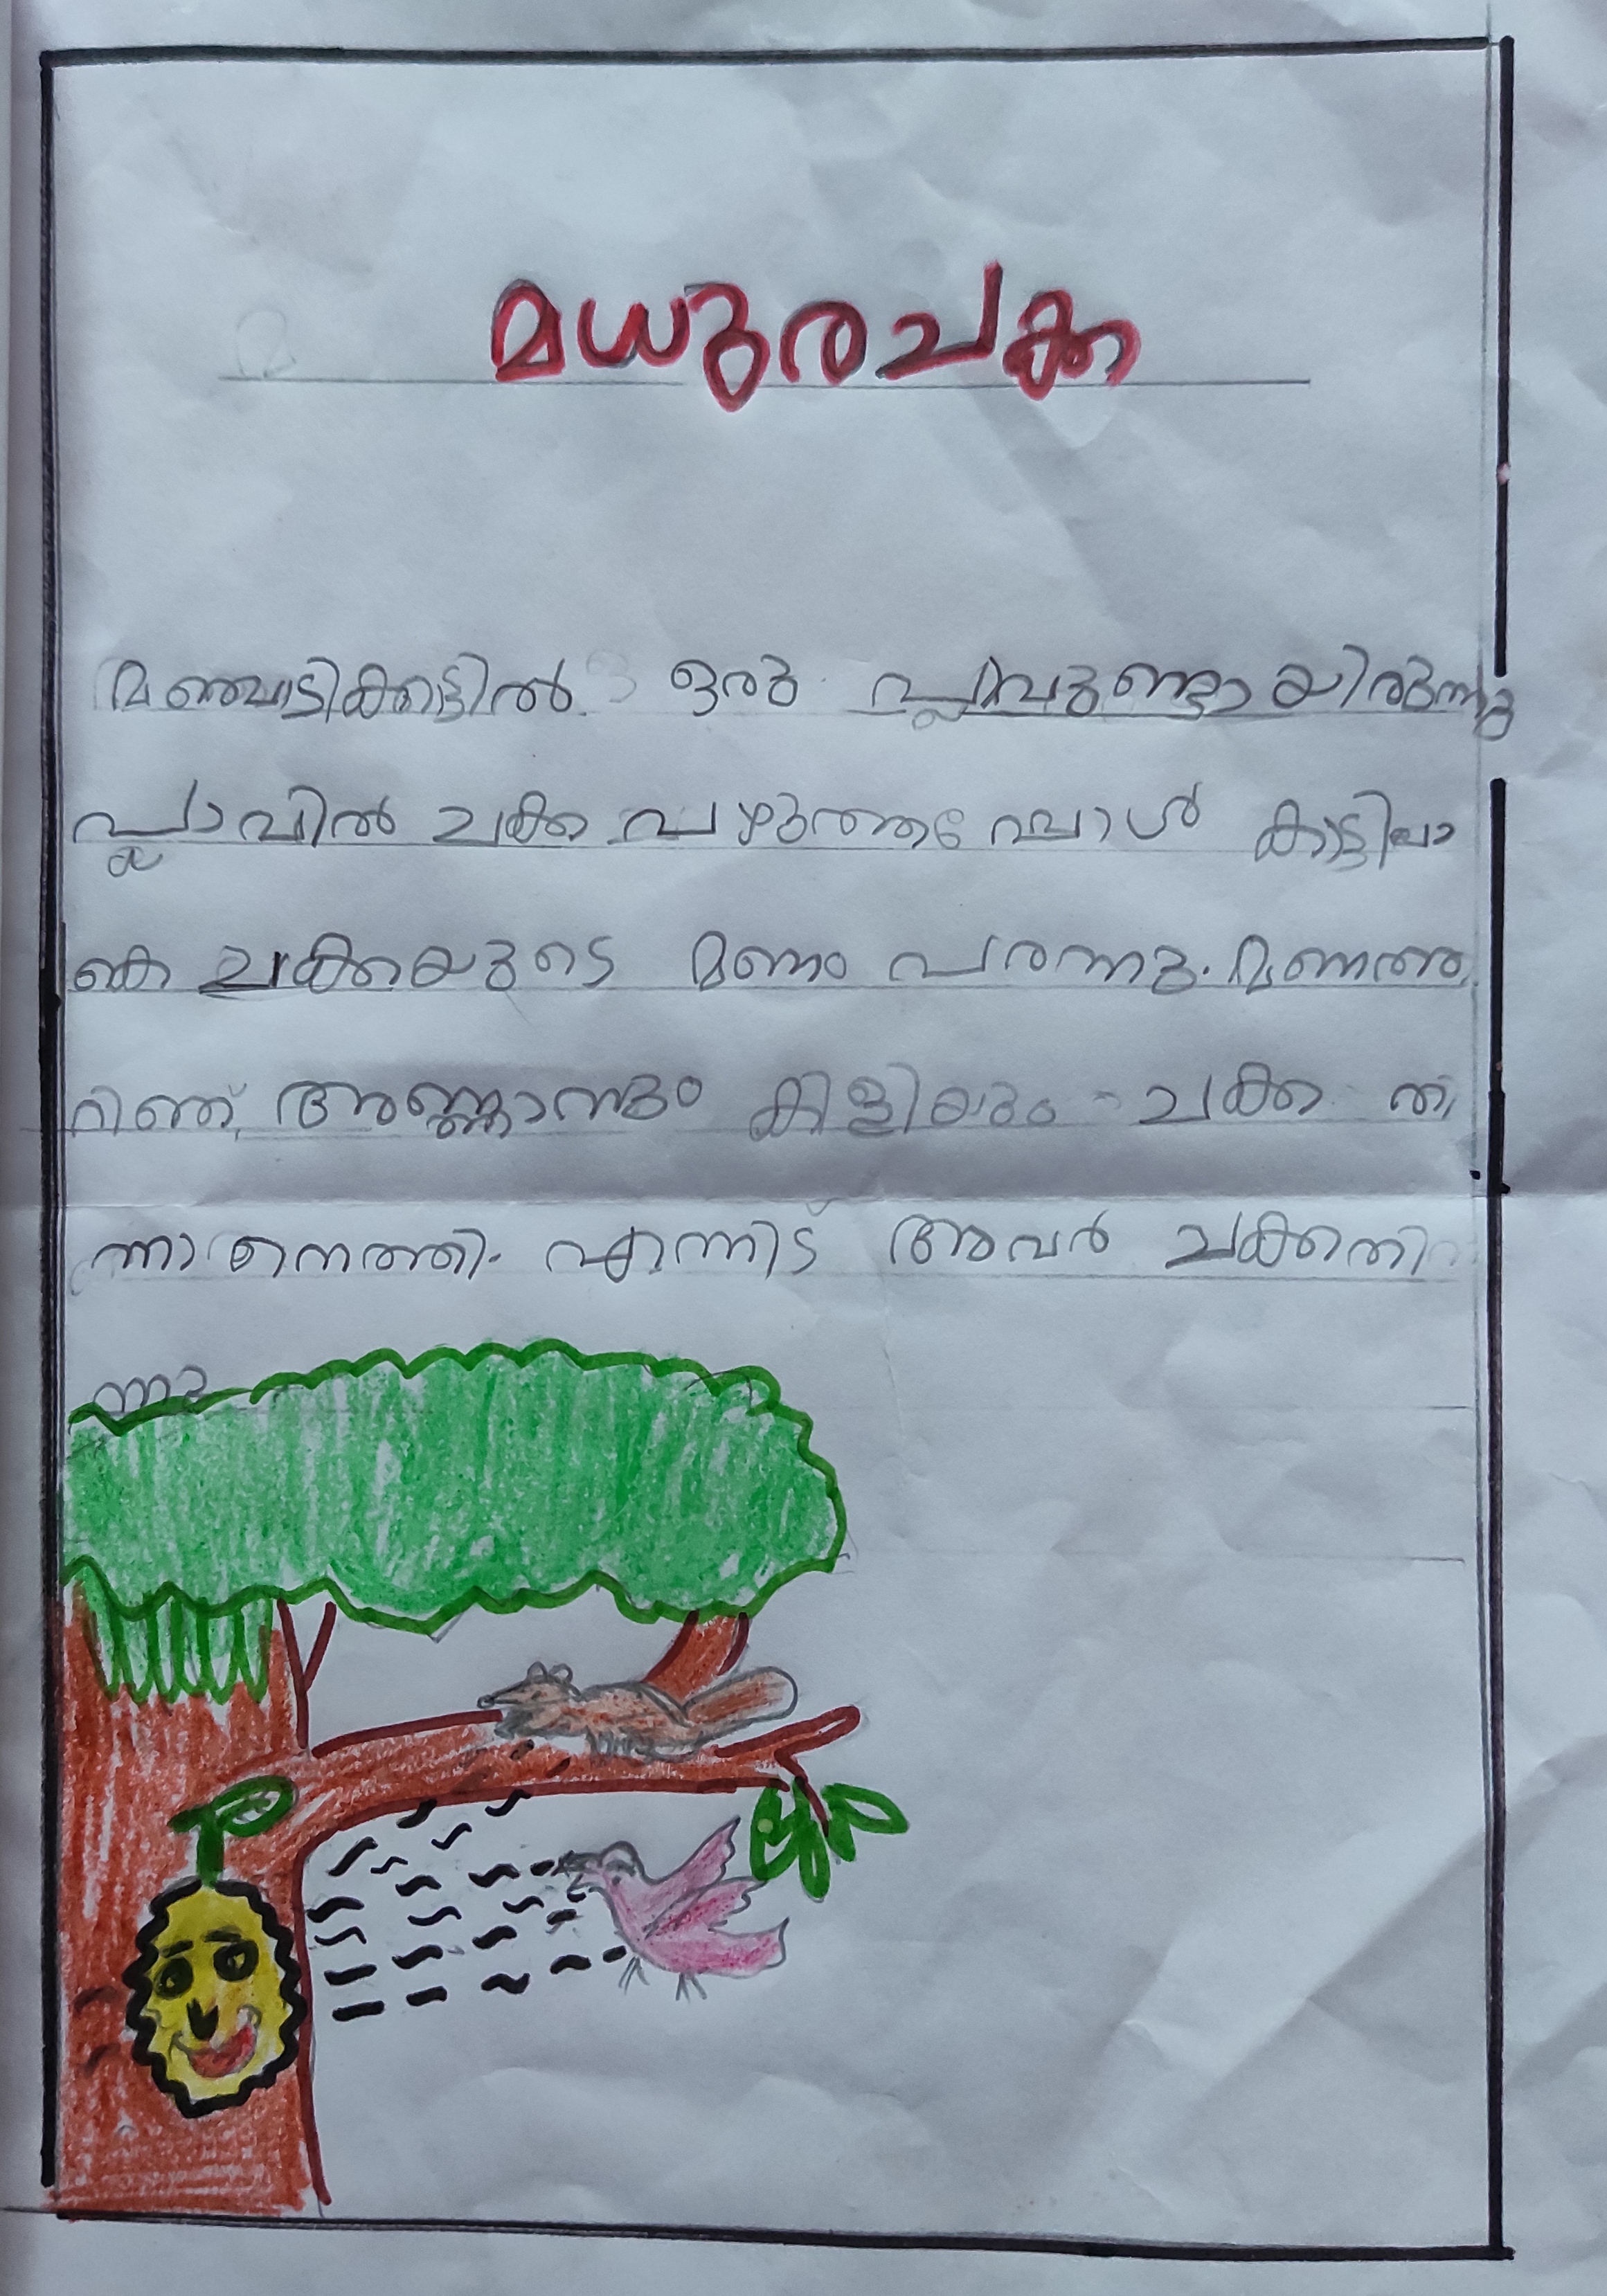 മധുരചക്ക
മഞ്ചാടിക്കാട്ടിൽ ഒരു പ്ലാവുണ്ടായിരുന്നു
പ്ലാവിൽ ചക്ക പഴുത്തപ്പോൾ കാട്ടിലാ
കെ ചക്കയുടെ മണം പരന്നു. മണത്ത
റിഞ്ഞ് അണ്ണാനും കിളിയും ചക്ക തി
ന്നാനെത്തി. എന്നിട് അവർ ചക്കതി
ന്നു